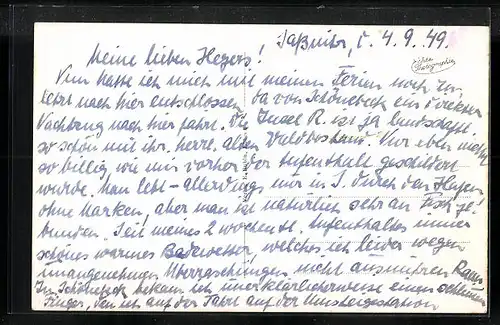 Saßnitz, d. 4.9.49.
Meine lieben Hegers!
Nun hatte ich mich mit meinen Ferien noch zu
letzt nach hier entschlossen, da von Schönebeck ein direkter
Nachtzug nach hier fährt. Die Insel R. ist ja landschaftl.
so schön mit ihr. herrl. alten Waldbestand. Nur eben nicht
so billig, wie mir vorher der Aufenthalt geschildert
wurde. Man lebt - allerdings nur in S. durch den Hafen
ohne Marken, aber man ist natürlich sehr an Fisch ge-
bunden. Seit meines 2 wöchentl. Aufenthaltes immer
schönes warmes Badewetter, welches ich leider wegen
unangenehmer Überraschungen nicht ausnutzen kann.
In Schönebeck bekam ich unerklärlicherweise einen schlimmen
Finger, den ich auf der Fahrt auf der Umsteigestation